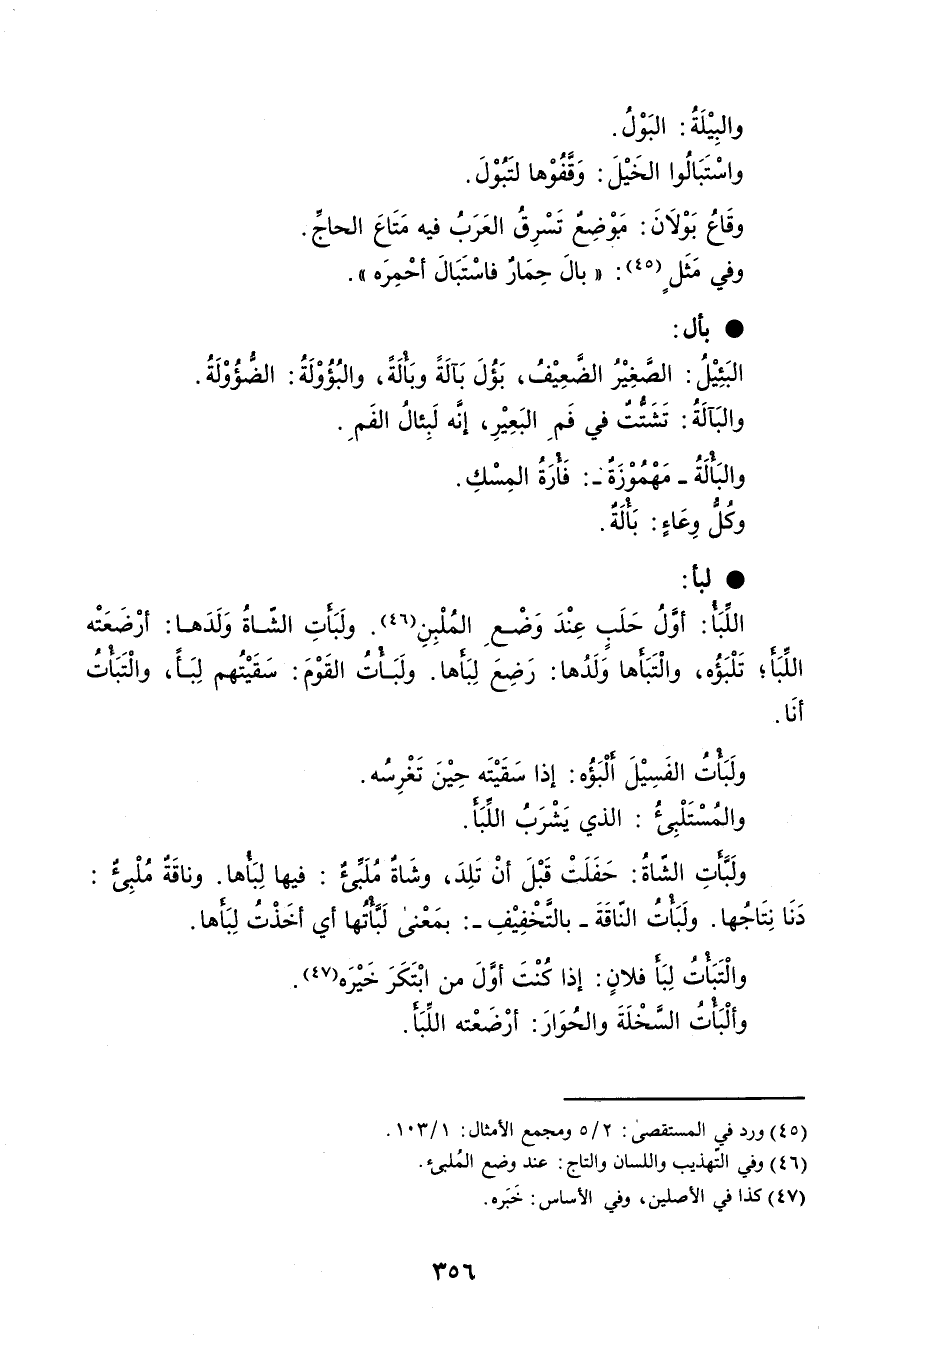 والبِيْلَةُ: البَوْلُ.
واسْتَبَالُوا الخَيْلَ: وَقَّفُوْها لتَبُوْلَ.
وقَاعُ بَوْلَانَ: مَوْضِعٌ تَسْرِقُ العَرَبُ فيه مَتَاعَ الحاجِّ.
وفي مَثَلٍ(٤٥): « بالَ حِمَارٌ فاسْتَبَالَ أحْمِرَه ».
● بأل:
البَئِيْلُ: الصَّغِيْرُ الضَّعِيْفُ، بَؤُلَ بَآلَةً وبَأْلَةً، والبُؤُوْلَةُ: الضُّؤُوْلَةُ.
والبَآلَةُ: تَشَتُّتٌ في فَمِ البَعِيْرِ، إنَّه لَبِئالُ الفَمِ.
والبَأْلَةُ ـ مَهْمُوْزَةٌ ـ: فَأْرَةُ المِسْكِ.
وكُلُّ وِعَاءٍ: بَأْلَةٌ.
● لبأ:
اللِّبَأُ: أوَّلُ حَلَبٍ عِنْدَ وَضْعِ المُلْبِنِ(٤٦). ولَبَأَتِ الشّاةُ وَلَدَها: أرْضَعَتْه
اللِّبَأَ؛ تَلْبَؤُه، والْتَبَأَها وَلَدُها: رَضِعَ لِبَأَها. ولَبَأْتُ القَوْمَ: سَقَيْتُهم لِبَأً، والْتَبَأْتُ
أنَا.
ولَبَأْتُ الفَسِيْلَ أَلْبَؤُه: إذا سَقَيْتَه حِيْنَ تَغْرِسُه.
والمُسْتَلْبِئُ : الذي يَشْرَبُ اللِّبَأَ.
ولَبَّأَتِ الشّاةُ: حَفَلَتْ قَبْلَ أنْ تَلِدَ، وشَاةٌ مُلَبِّئٌ : فيها لِبَأُها. وناقَةٌ مُلْبِئٌ :
دَنَا نِتَاجُها. ولَبَأْتُ النّاقَةَ ـ بالتَّخْفِيْفِ ـ: بمَعْنىٰ لَبَّأْتُها أي أخَذْتُ لِبَأَها.
والْتَبَأْتُ لِبَأَ فلانٍ: إذا كُنْتَ أوَّلَ من ابْتَكَرَ خَيْرَه(٤٧).
وألْبَأْتُ السَّخْلَةَ والحُوَارَ: أرْضَعْته اللِّبَأَ.
(٤٥) ورد في المستقصىٰ: ٥/٢ ومجمع الأمثال: ١٠٣/١.
(٤٦) وفي التّهذيب واللسان والتاج: عند وضع المُلبىء.
(٤٧) كذا في الأصلين، وفي الأساس: خَبَره.
٣٥٦